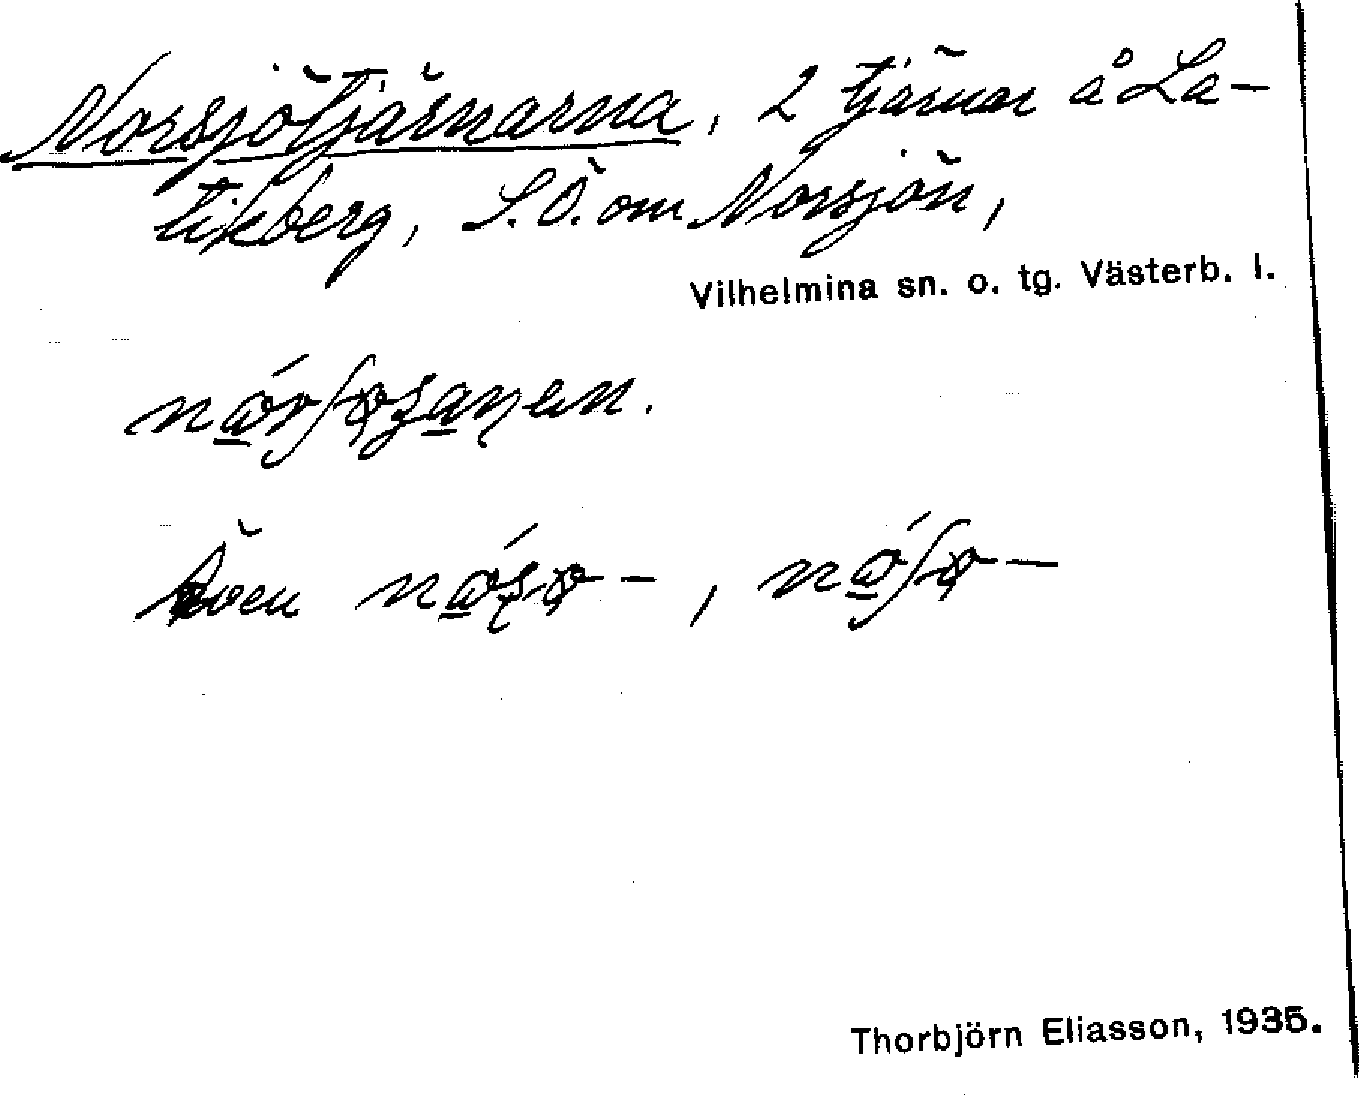 Norsjötjärnarna, 2 tjärnar å La-
tikberg, S.Ö. om Norsjön,
Vilhelmina sn. o. tg. Västerb. l.
Även
Thorbjörn Eliasson, 1935.